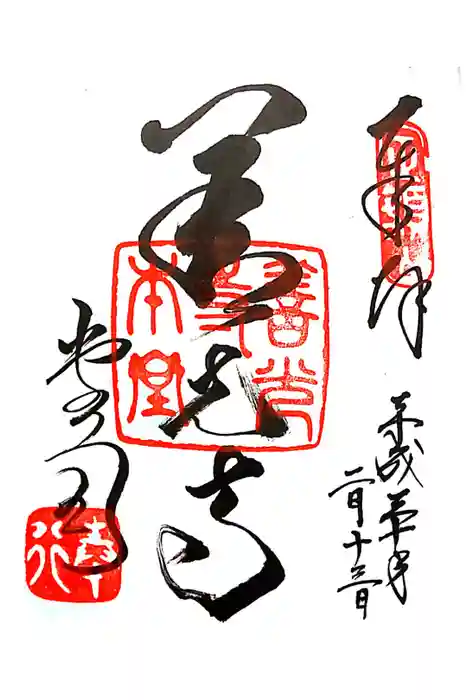 奉拝
定額山
平成三十年
二月十三日
善光寺
善光寺
本堂
奉行